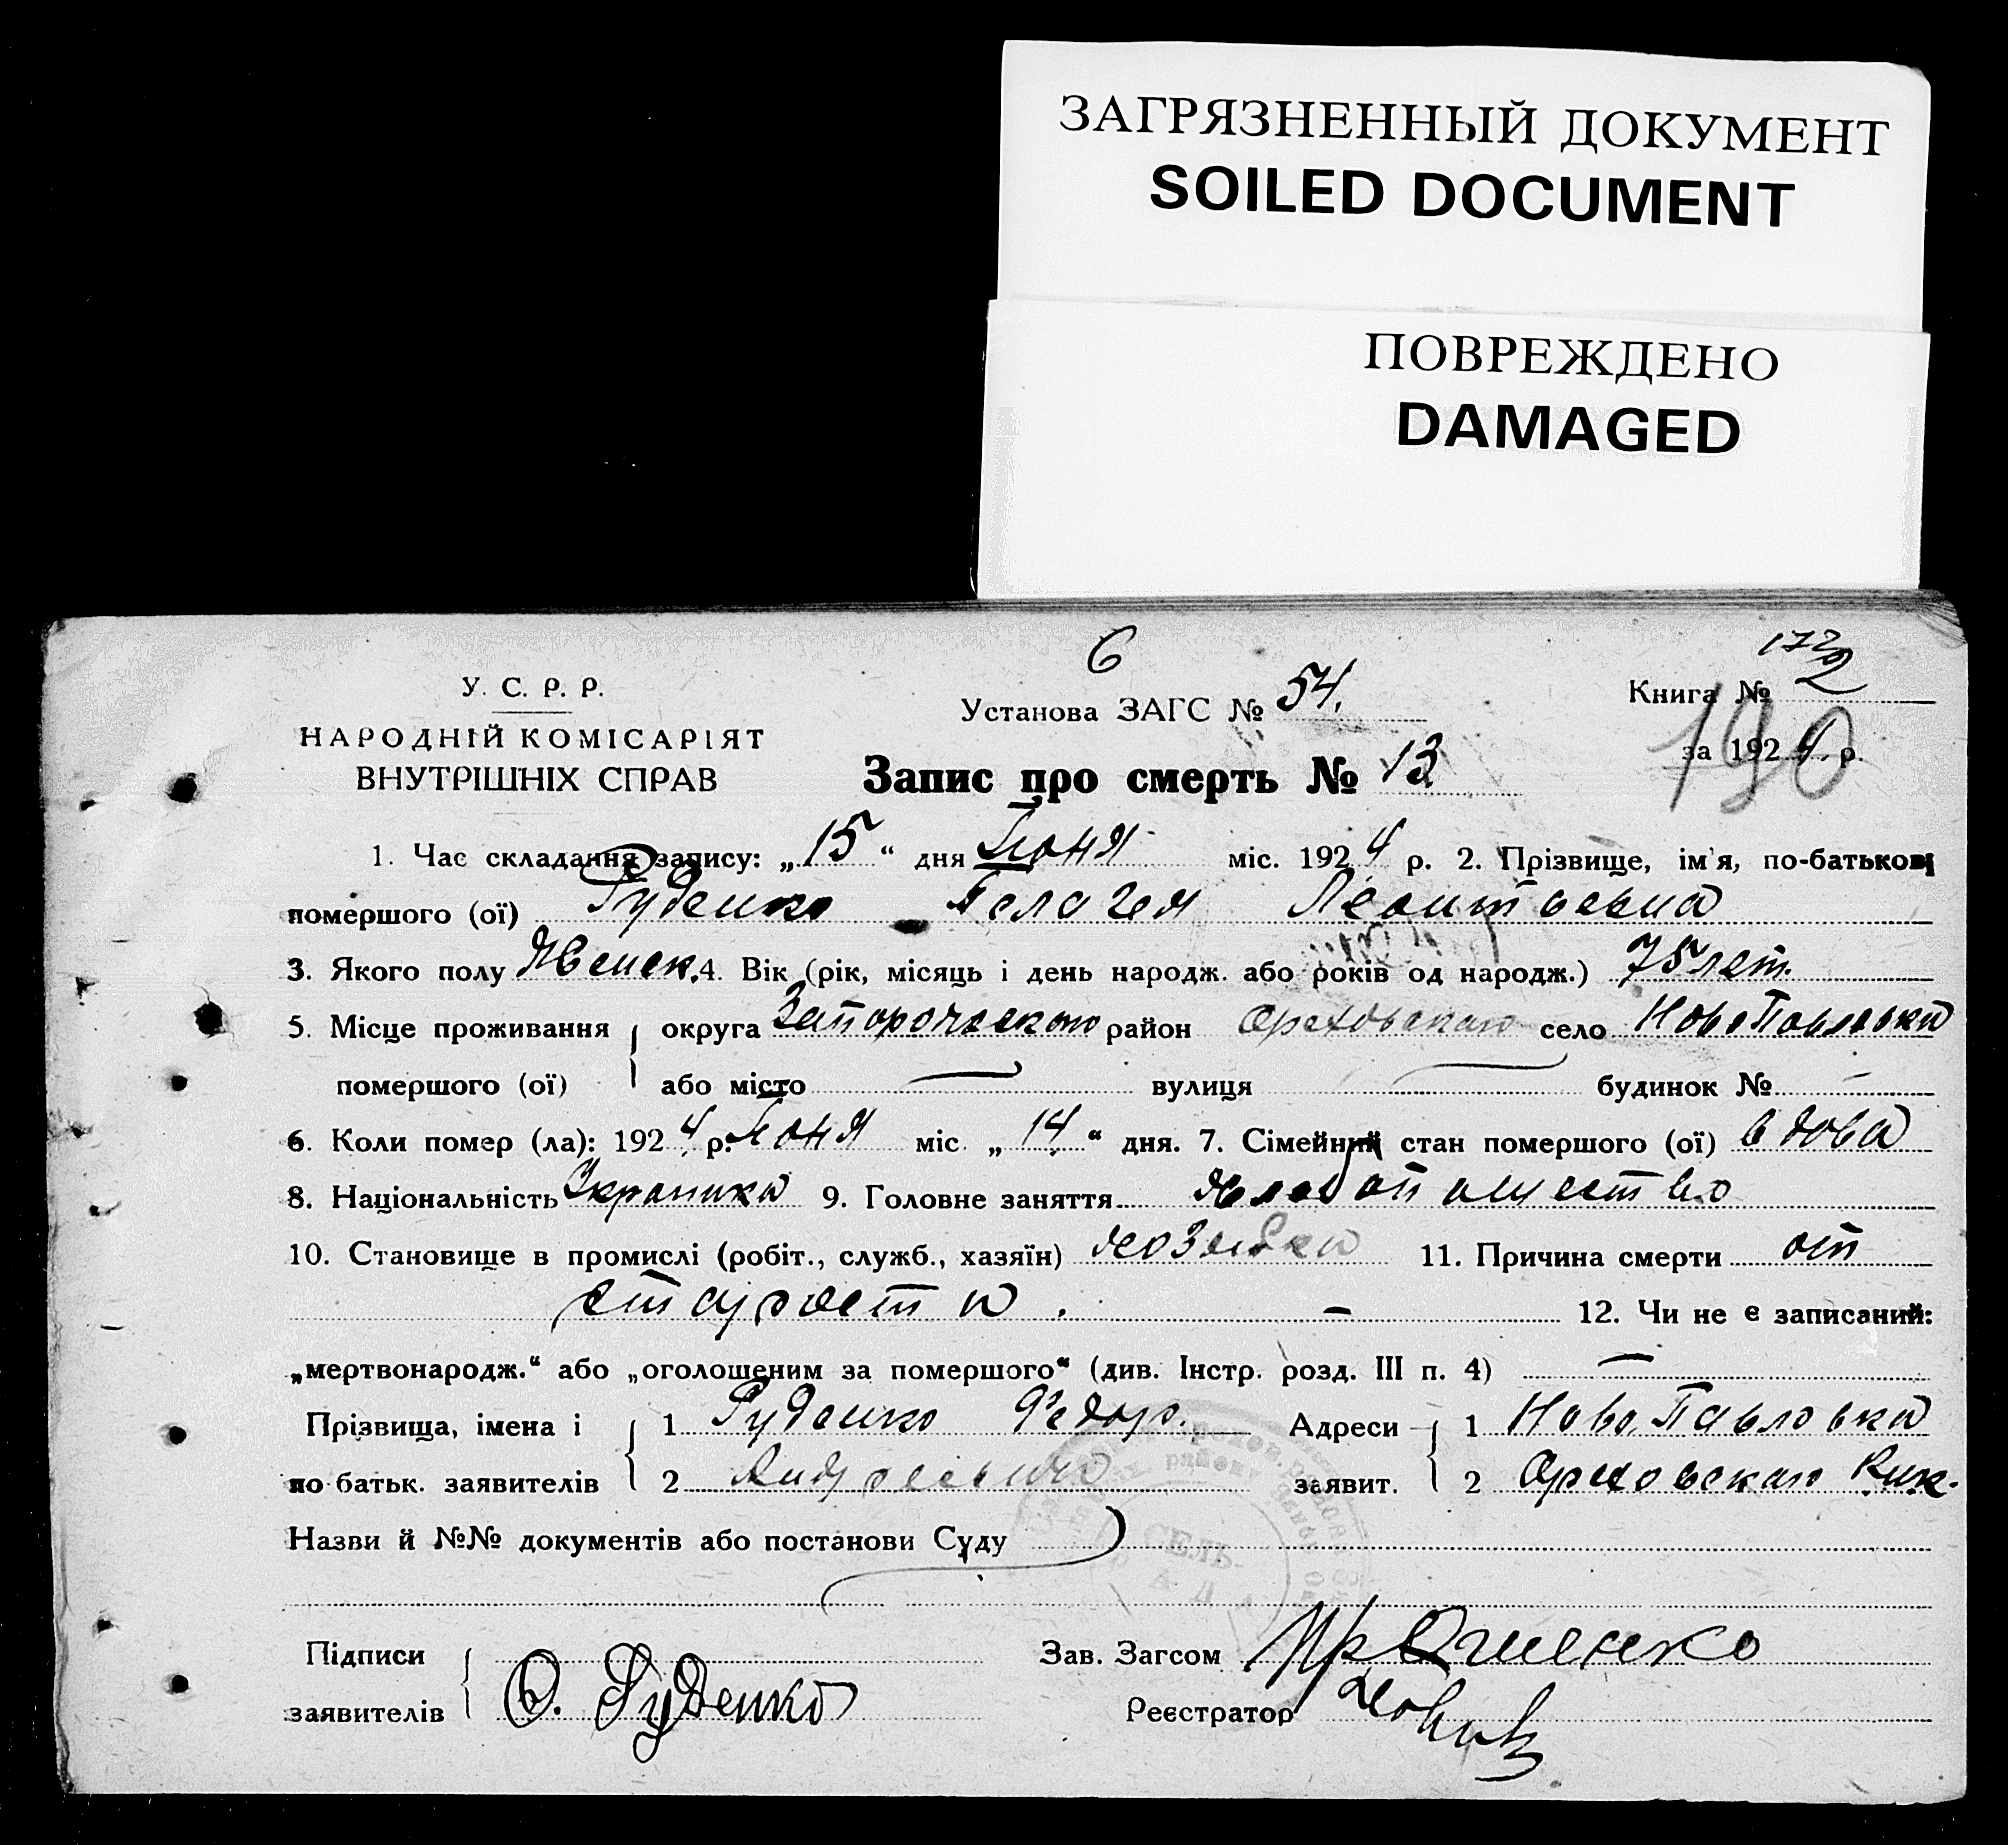 ЗАГРЯЗНЕННЫЙ ДОКУМЕНТ
SOILED DOCUMENT
ПОВРЕЖДЕНО
DAMAGED
6
172
У. С. Р. Р.
Установа ЗАГС № 54.
Книга № 2
НАРОДНІЙ КОМІСАРІЯТ
190
за 1924 р.
ВНУТРІШНІХ СПРАВ
Запис про смерть № 13
1. Час складання запису: „15“ дня Іюня міс. 1924 р. 2. Прізвище, ім'я, по-батькові
помершого (ої) Руденко Пелагея Леонтьевна
3. Якого полу Женск. 4. Вік (рік, місяць і день народж. або років од народж.) 75 лет.
5. Місце проживання округа Запорожского район Ореховского село НовоПавловки
помершого (ої) або місто — вулиця — будинок № —
6. Коли помер (ла): 1924 р. Июня міс. „14“ дня. 7. Сімейний стан помершого (ої) вдова
8. Національність Украинка 9. Головне заняття хлебопашество
10. Становище в промислі (робіт., служб., хазяїн) хозяйка 11. Причина смерти от
старости. — 12. Чи не є записаний:
„мертвонародж.“ або „оголошеним за помершого“ (див. Інстр. розд. III п. 4) —
Прізвища, імена і 1 Руденко Федор. Адреси 1 Ново.Павловки
по батьк. заявителів 2 Андреевич заявит. 2 Ореховскаго Рик.
Назви й №№ документів або постанови Суду
СЕЛЬ-
РАДА
Підписи Зав. Загсом
заявителів Ф. Руденко Реєстратор